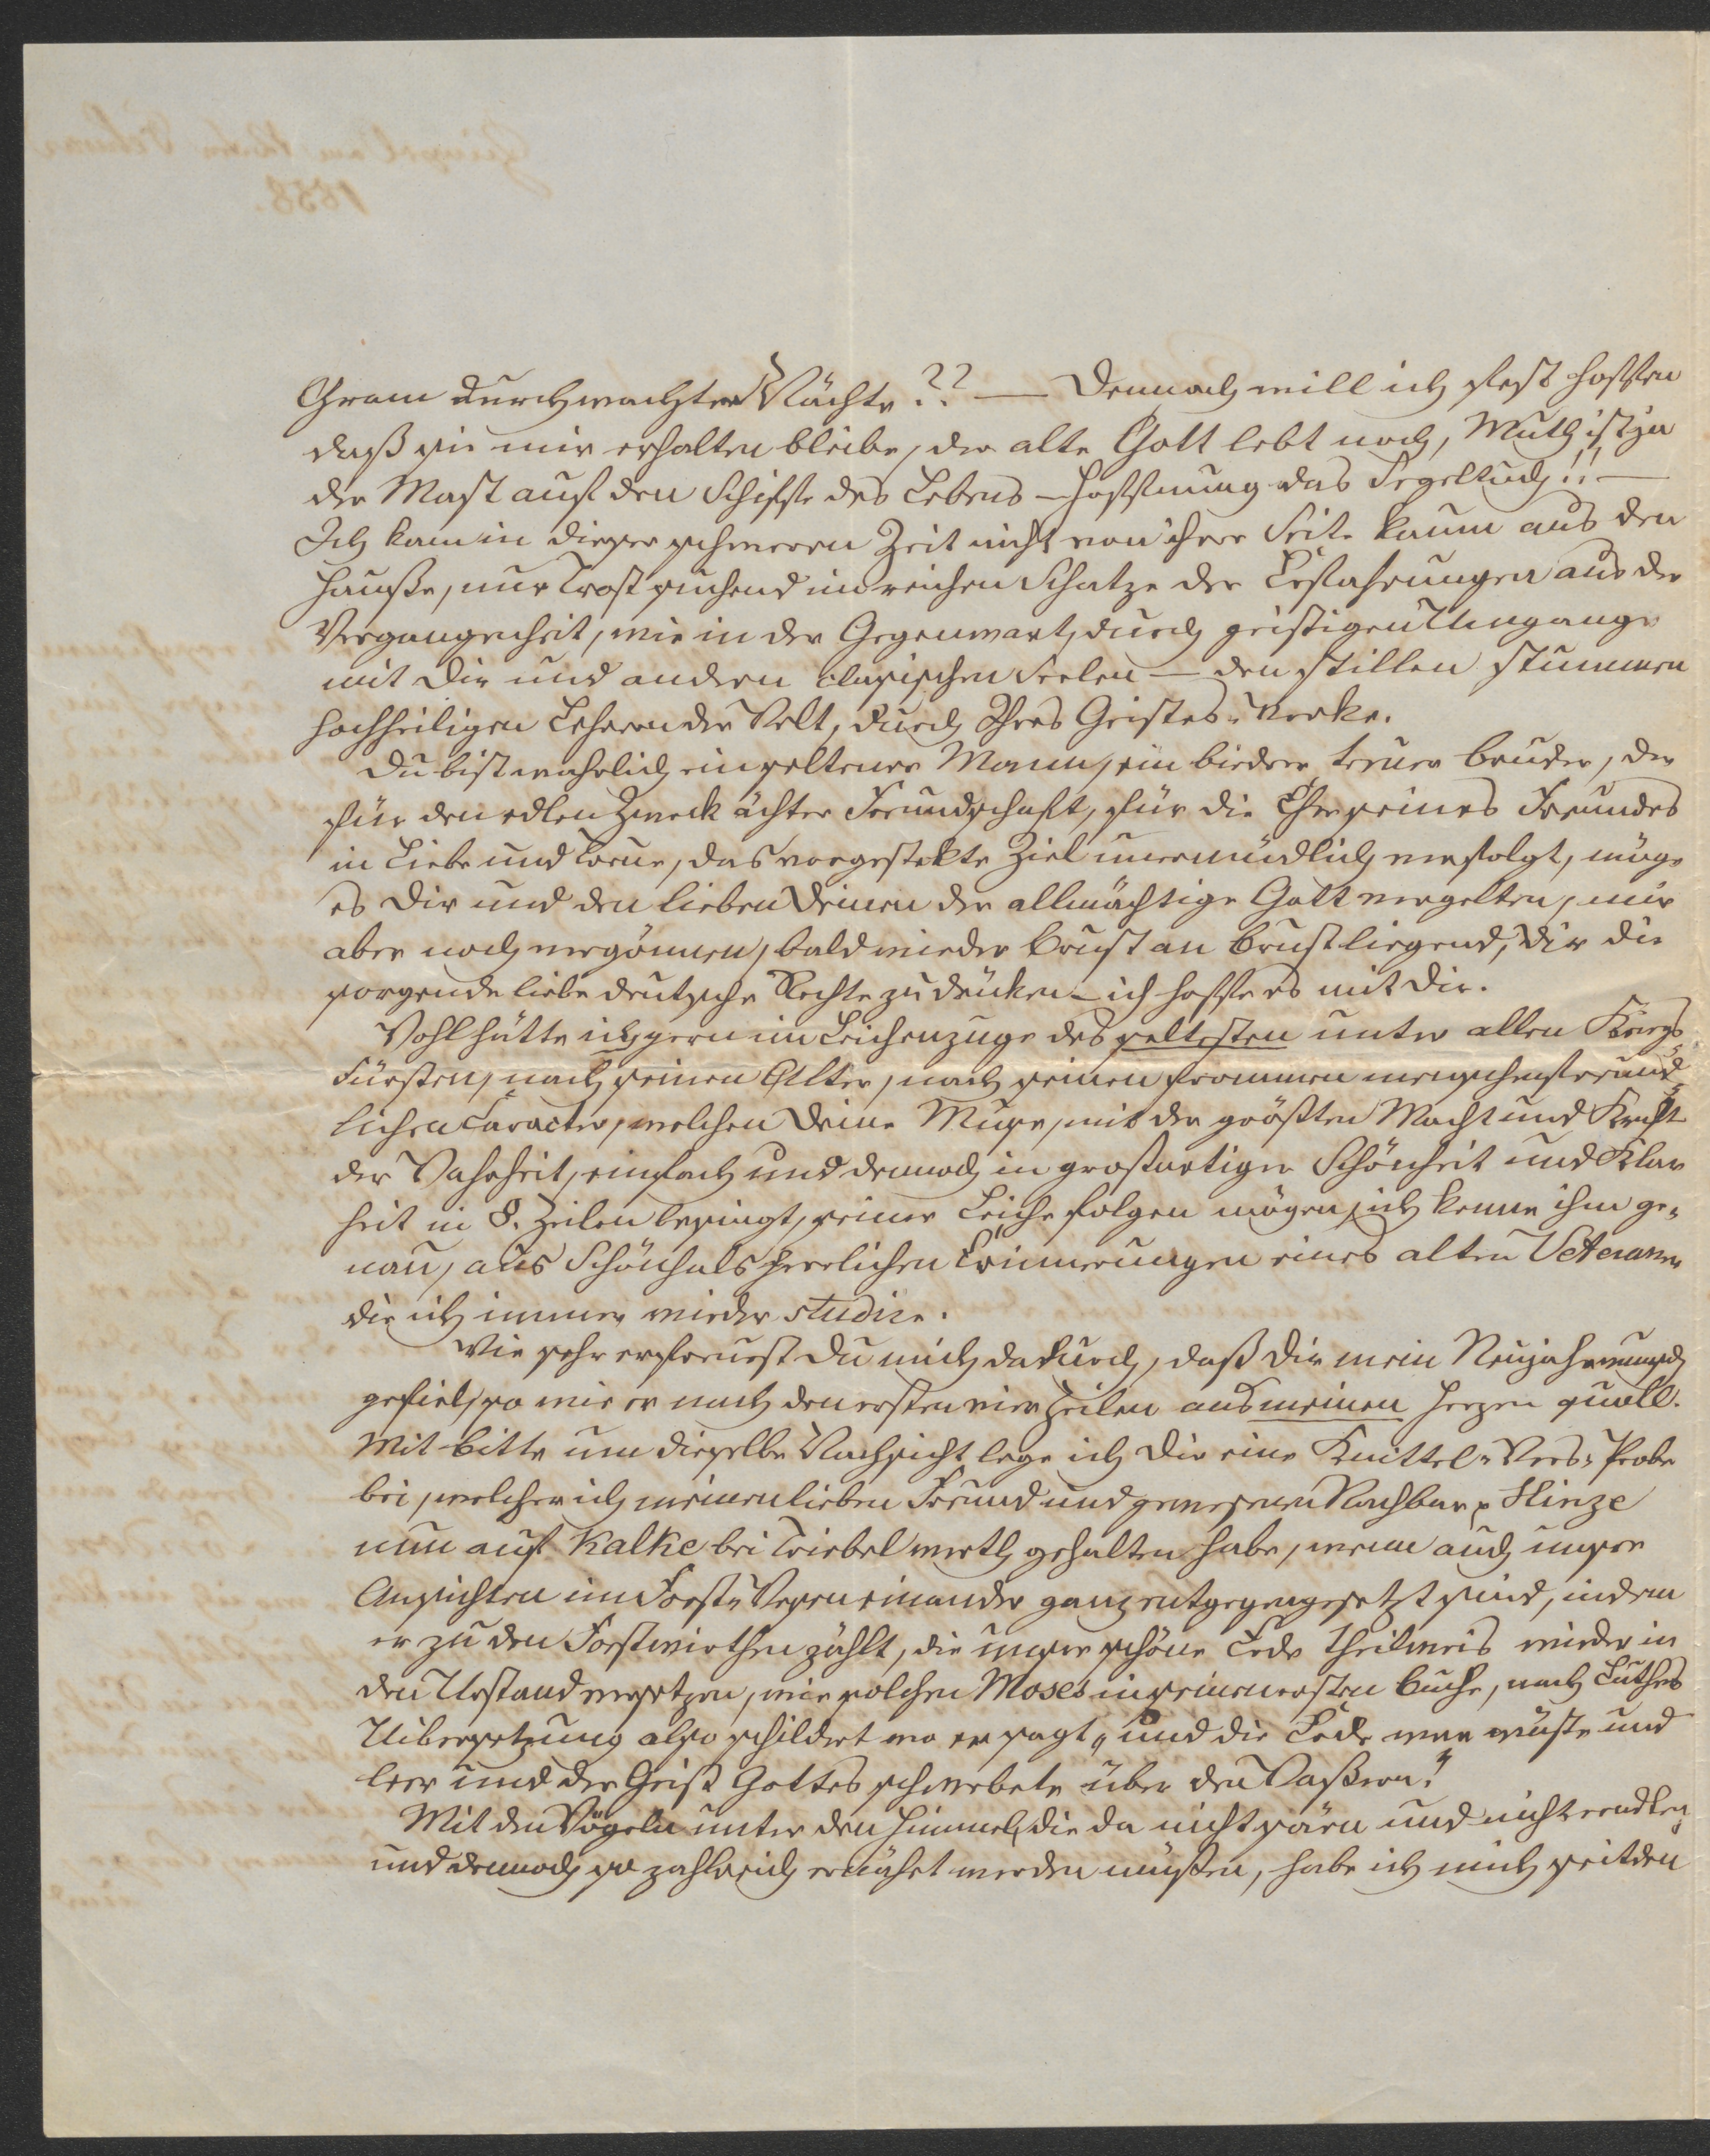 Gram durchwachter Nächte?? — Dennoch will ich fest hoffen
daß sie mir erhalten bleibe, der alte Gott lebt noch, Muth ist ja
der Mast auf den Schiffe des Lebens – Hoffnung das Segeltuch!! —
Ich kam in dieser schweren Zeit nicht von ihrer Seite kaum aus den
Hauße, nur Trost suchend im reichen Schatze der Erfahrungen aus der
Vergangenheit, wie in der Gegenwart, durch geistigen Umgange
mit Dir und andern classischen Seelen — den stillen stummen
hochheiligen Lehrern der Welt, durch Ihres Geistes-Werke.
Du bist wahrlich ein seltener Mann, ein biedrer treuer Bruder, der
für den edlen Zweck ächter Freundschaft, für die Ehre seines Freundes
in Liebe und Treue, das vorgestekte Ziel unermüdlich verfolgt, möge
es Dir und den lieben Deinen der allmächtige Gott vergelten, mir
aber noch vergönnen, bald wieder Brust an Brust liegend, Dir die
sorgende liebe deutsche Rechte zu drüken – ich hoffe es mit Dir.
Wohl hätte ich gern im Leichenzuge des seltesten unter allen Kriegs-
Fürsten, nach seinen Alter, nach seinen frommen menschenfreund-
lichen Caracter, welchen Deine Muse, mit der größten Macht und Kraft
der Wahrheit, einfach und dennoch in großartiger Schönheit und Klar
heit in 8. Zeilen besingt, seiner Leiche folgen mögen, ich kenne ihn ge-
nau, aus Schönhals herrlichen Erinnerungen eines alten Veteranen
die ich immer wieder studire.
Wie sehr erfreust Du mich dadurch, daß Dir mein Neujahrwunsch
gefiel, so wie er nach den ersten vier Zeilen aus meinen Herzen quoll.
Mit Bitte um dieselbe Nachsicht lege ich Dir eine Knittel-Vers-Probe
bei, welcher ich meinen lieben Freund und gewesenen Nachbar Hinze
nun auf Kalke bei Triebel werth gehalten habe, wenn auch unsre
Ansichten im Forst-Wesen einander ganz entgegengesetzt sind, indem
er zu den Forstwirthen zählt, die unsre schöne Erde theilweis wieder in
den Urstand versetzen, wie solchen Moses in seinem ersten Buche, nach Luthers
Uibersetzung also schildert wo er sagt „und die Erde war wüste und
leer und der Geist Gottes schwebete über den Waßern!"
Mit den Vögeln unter den Himmel, die da nicht säen und nicht erndten
und dennoch so zahlreich ernährt werden müßen, habe ich mich seit den